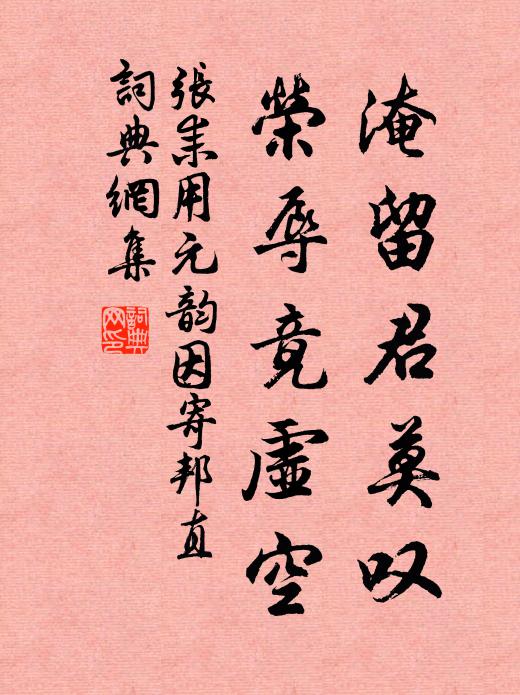 淹留君莫叹
荣辱竟虚空
张耒用元韵因寄邦直
词典网集
词典网印